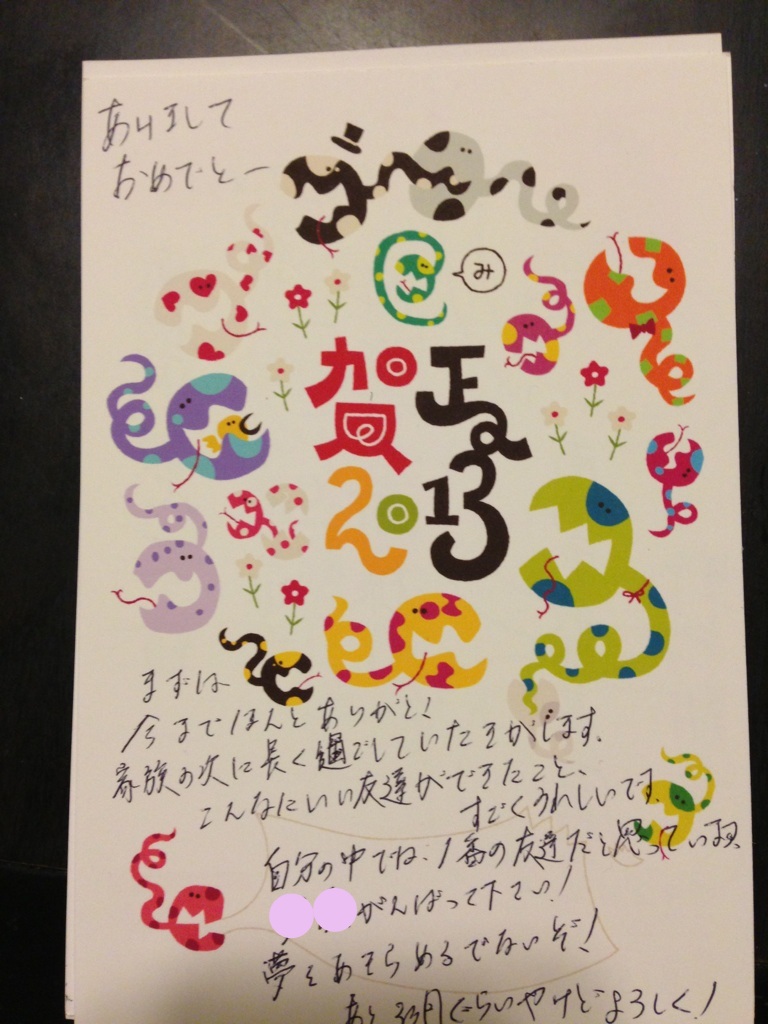 あけまして
おめでとー
み
賀正
2013
まずは
今までほんとありがと!
家族の次に長く過ごしていたきがします。
こんなにいい友達ができたこと、
すごくうれしいです。
自分の中でね、1番の友達だと思っています。
がんばって下さい!
夢をあきらめるでないぞ!
あと3ヶ月ぐらいやけどよろしく!